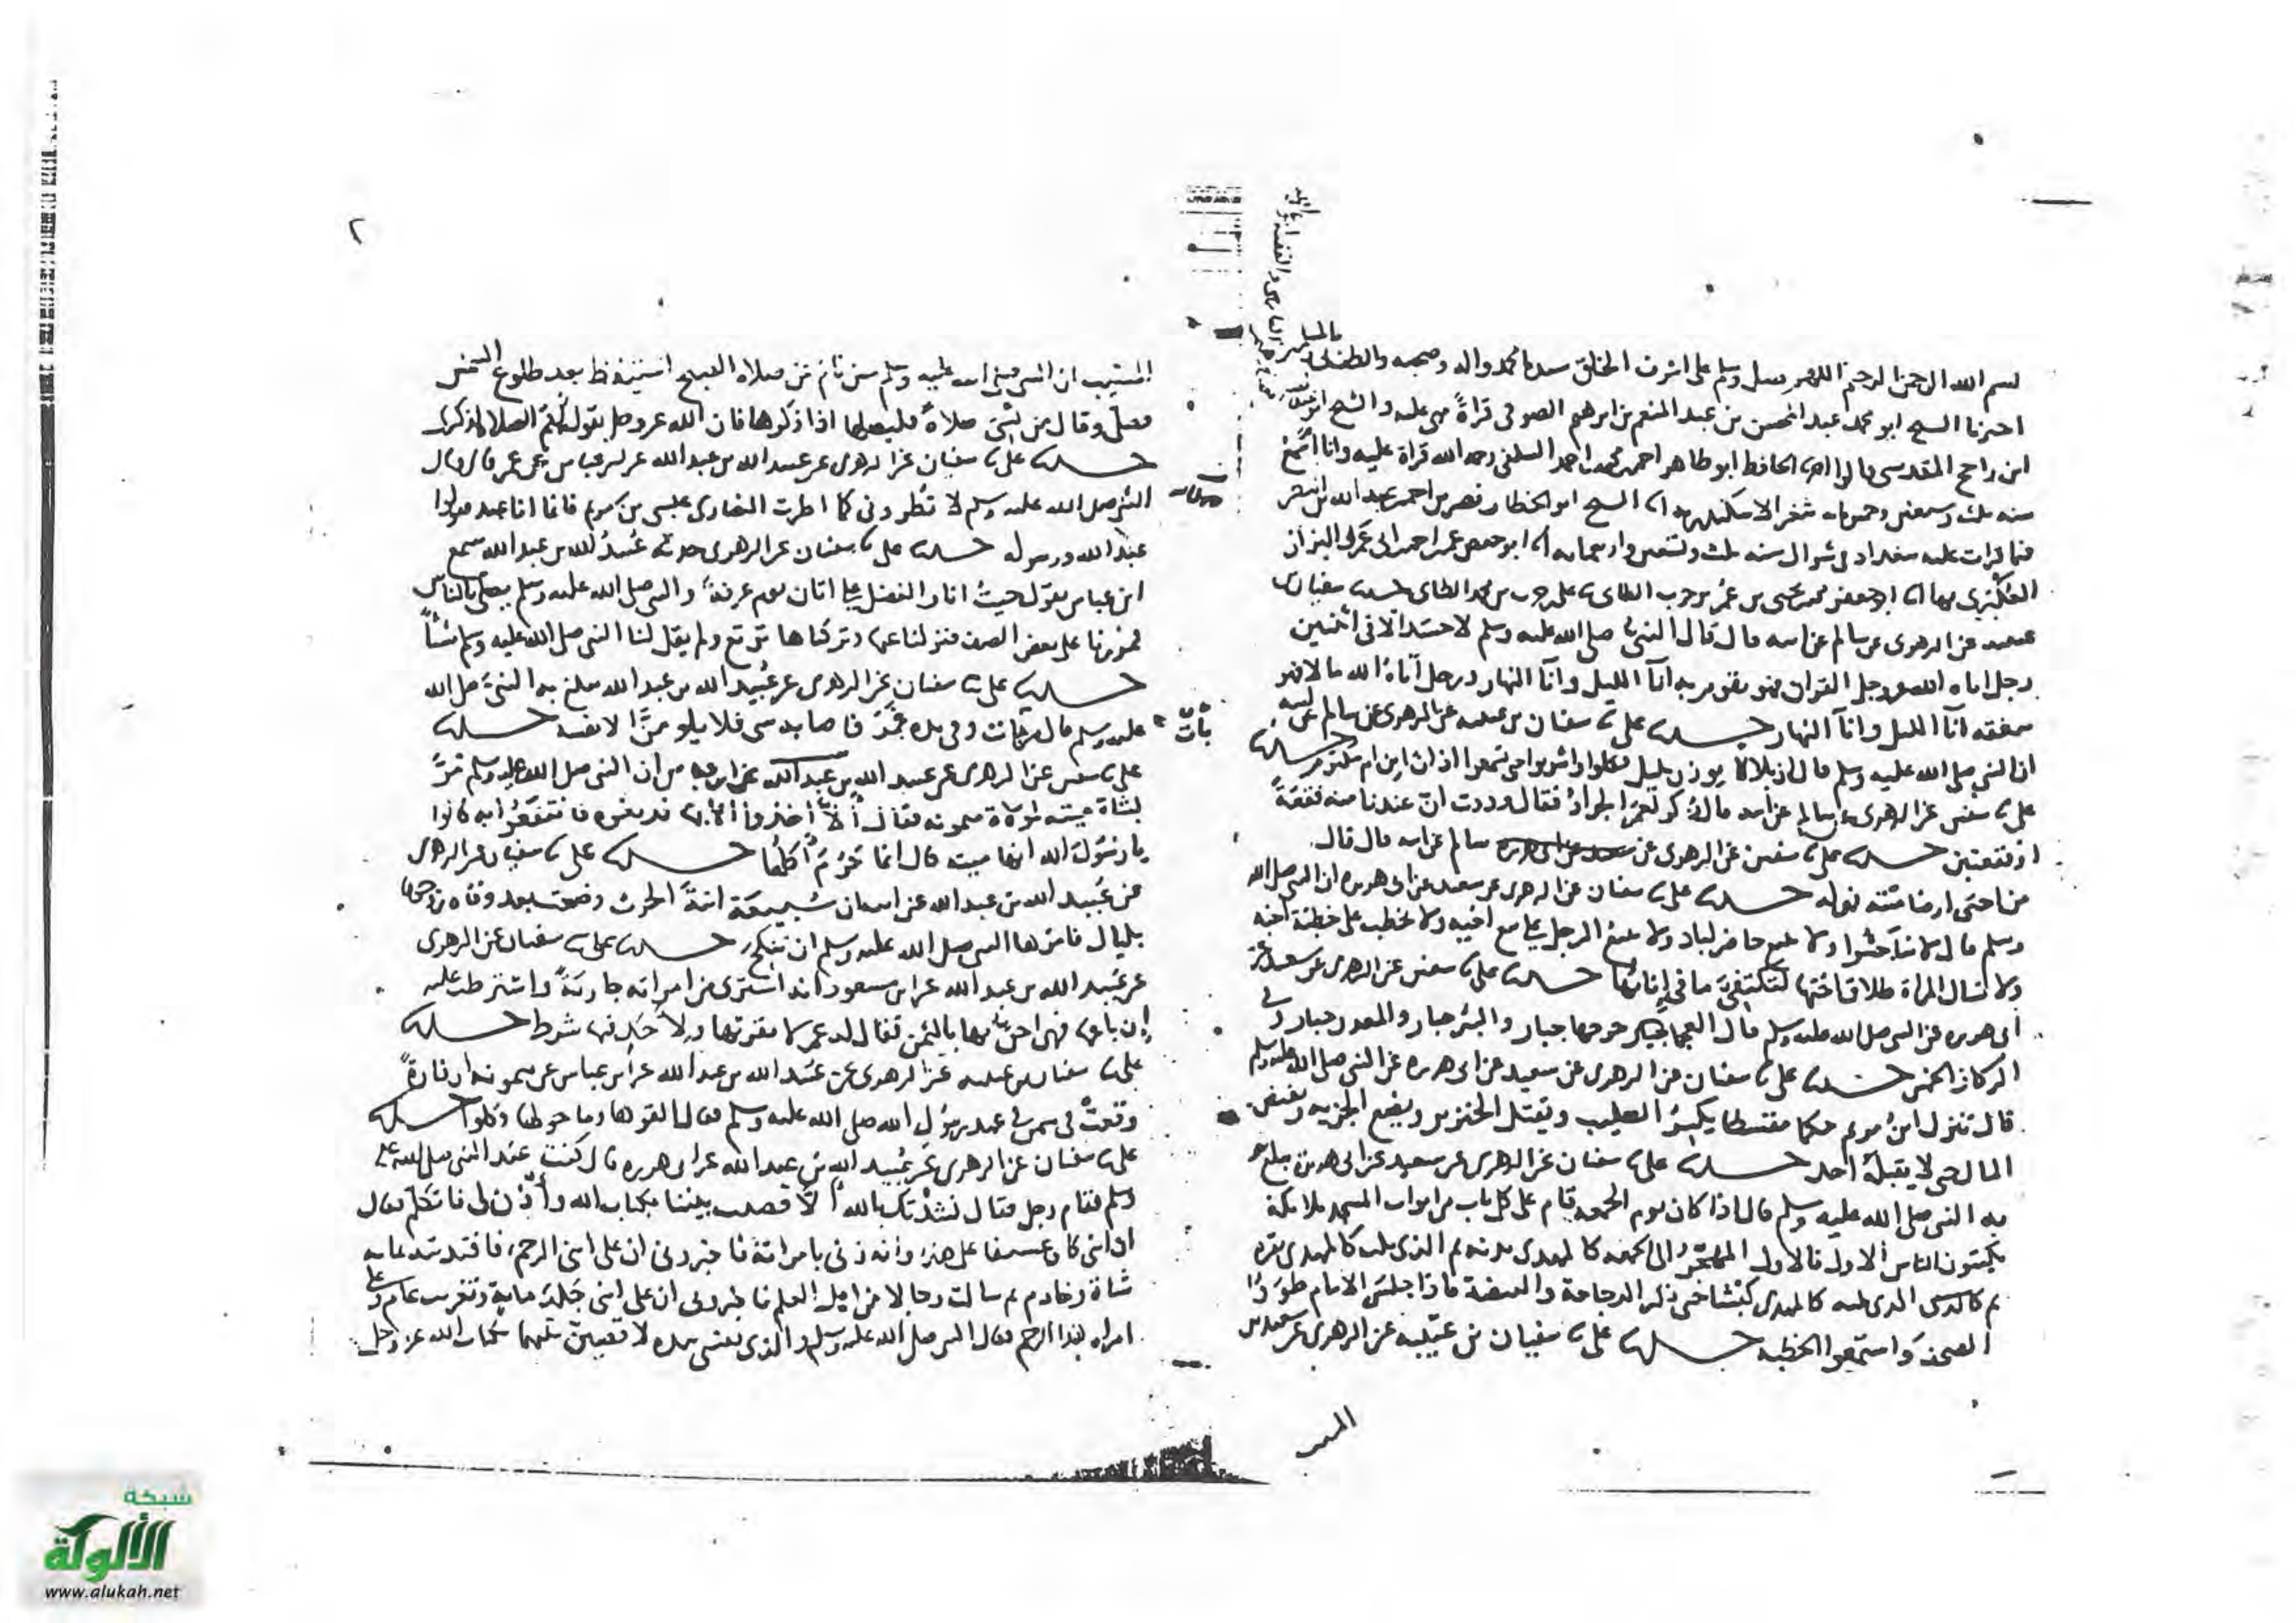 بسم الله الرحمن الرحيم اللهم صل وسلم على اشرف الخلق سيدنا محمد واله وصحبه
اخبرنا الشيخ ابو محمد عبد المحسن بن عبد المنعم بن ابرهيم الصوفي قراةً مني عليه والشيخ
ابن راجح المقدسي قالوا الحافظ ابو طاهر احمد بن محمد بن احمد السلفي رحمه الله قراة عليه وانا اسمع
سنه ثلث وسبعين وخمسمايه بثغر الاسكندريه انا الشيخ ابو الخطاب نصر بن احمد بن عبد الله بن البطر
فيما قرات عليه ببغداد في شوال سنه ثلث وتسعين واربعمايه انا ابو حفص عمر بن احمد البزاز
العكبري بها انا ابو جعفر محمد بن يحيى بن عمر بن حرب الطائي نا علي بن حرب بن محمد الطائي حدثنا سفيان بن
عيينه عن الزهري عن سالم عن ابيه قال قال النبي صلى الله عليه وسلم لا حسد الا في اثنتين
رجل اتاه الله عز وجل القران فهو يقوم به اناَ الليل واناَ النهار ورجل اتاه الله مالا فهو
ينفقه اناَ الليل واناَ النهار حدثنا علي نا سفيان بن عيينه عن الزهري عن سالم عن ابيه
ان النبي صلى الله عليه وسلم قال ان بلالا يوذن بليل فكلوا واشربوا حتى تسمعوا اذان ابن ام مكتوم حدثنا
علي نا سفين عن الزهري عن سالم عن ابيه قال ذكر لعمر الجراد فقال وددت ان عندنا منه قفعةً
او قفعتين حدثنا علي نا سفين عن الزهري عن سالم عن ابيه قال قال
حدثنا علي نا سفيان عن الزهري عن سعيد عن ابي هريره ان النبي صلى الله
وسلم قال لا تناجشوا ولا يبع حاضر لباد ولا يبع الرجل على بيع اخيه ولا يخطب على خطبة اخيه
ولا تسال المراة طلاق اختها لتكتفئ ما في إنائها حدثنا علي نا سفين عن الزهري عن سعيد عن
ابي هريره عن النبي صلى الله عليه وسلم قال العجما جرحها جبار والبئر جبار والمعدن جبار وفي
الركاز الخمس حدثنا علي نا سفيان عن الزهري عن سعيد عن ابي هريره عن النبي صلى الله عليه وسلم
قال تنزل ابن مريم حكما مقسطا يكسر الصليب ويقتل الخنزير ويضع الجزيه ويفيض
المال حتى لا يقبله احد حدثنا علي نا سفيان عن الزهري عن سعيد عن ابي هريره يبلغ
به النبي صلى الله عليه وسلم قال اذا كان يوم الجمعه قام على كل باب من ابواب المسجد ملايكة
يكتبون الناس الاول فالاول المهجر الى الجمعه كالمهدي بدنه ثم الذي يليه كالمهدي بقره
ثم الذي يليه كالمهدي كبشا حتى ذكر الدجاجة والبيضة فاذا جلس الامام طووا
الصحف واستمعوا الخطبه حدثنا علي نا سفيان بن عيينه عن الزهري عن سعيد بن
المسيب
٢
المسيب ان النبي صلى الله عليه وسلم حين نام عن صلاه الصبح استيقظ بعد طلوع الشمس
فصلى وقال من نسي صلاةً فليصلها اذا ذكرها فان الله عز وجل يقول اقم الصلاة لذكري
حدثنا علي نا سفيان عن الزهري عن عبيد الله بن عبد الله عن ابن عباس عن عمر قال قال
النبي صلى الله عليه وسلم لا تطروني كما اطرت النصارى عيسى بن مريم فانما انا عبد فقولوا
عبد الله ورسوله حدثنا علي نا سفيان عن الزهري حدثه عبيد الله بن عبد الله سمع
ابن عباس يقول جيت انا والفضل على اتان يوم عرفة والنبي صلى الله عليه وسلم يصلي بالناس
فمررنا على بعض الصف فنزلنا عنها وتركناها ترتع ولم يقل لنا النبي صلى الله عليه وسلم شيأً
حدثنا علي نا سفيان عن الزهري عن عبيد الله بن عبد الله يبلغ به النبي صلى الله
عليه وسلم قال من بات وفي يده غمر فاصابه شي فلا يلومن الا نفسه حدثنا
علي نا سفين عن الزهري عن عبيد الله بن عبد الله عن ابن عباس ان النبي صلى الله عليه وسلم مر
بشاة ميته لمولاة ميمونه فقال ألا اخذوا اهابها فدبغوه فانتفعوا به قالوا
يا رسول الله انها ميتة قال انما حرم أكلها حدثنا علي نا سفيان عن الزهري
عن عبيد الله بن عبد الله عن ابيه ان سبيعة ابنة الحرث وضعت بعد وفاه زوجها
بليال فامرها النبي صلى الله عليه وسلم ان تنكح حدثنا علي نا سفيان عن الزهري
عن عبيد الله بن عبد الله عن ابن مسعود انه اشترى من امراته جاريةً واشترطت عليه
إن باعها فهي احق بها بالثمن فقال له عمر لا تقربها ولأحد فيها شرط حدثنا
علي نا سفيان بن عيينه عن الزهري عن عبيد الله بن عبد الله عن ابن عباس عن ميمونه ان فارةً
وقعت في سمن في عهد رسول الله صلى الله عليه وسلم فقال القوها وما حولها وكلوا حدثنا
علي نا سفيان عن الزهري عن عبيد الله بن عبد الله عن ابي هريره قال كنت عند النبي صلى الله عليه
وسلم فقام رجل فقال نشدتك بالله ألا قضيت بيننا بكتاب الله وأذن لي فاتكلم فقال
ان ابني كان عسيفا على هذا وانه زنى بامراته فاخبروني ان على ابني الرجم فافتديته بماية
شاة وخادم ثم سالت رجالا من اهل العلم فاخبروني ان على ابني جلد ماية وتغريب عام وعلى
امراه هذا الرجم فقال النبي صلى الله عليه وسلم والذي نفسي بيده لاقضين بينهما بكتاب الله عز وجل
شبكة
الألوكة
www.alukah.net